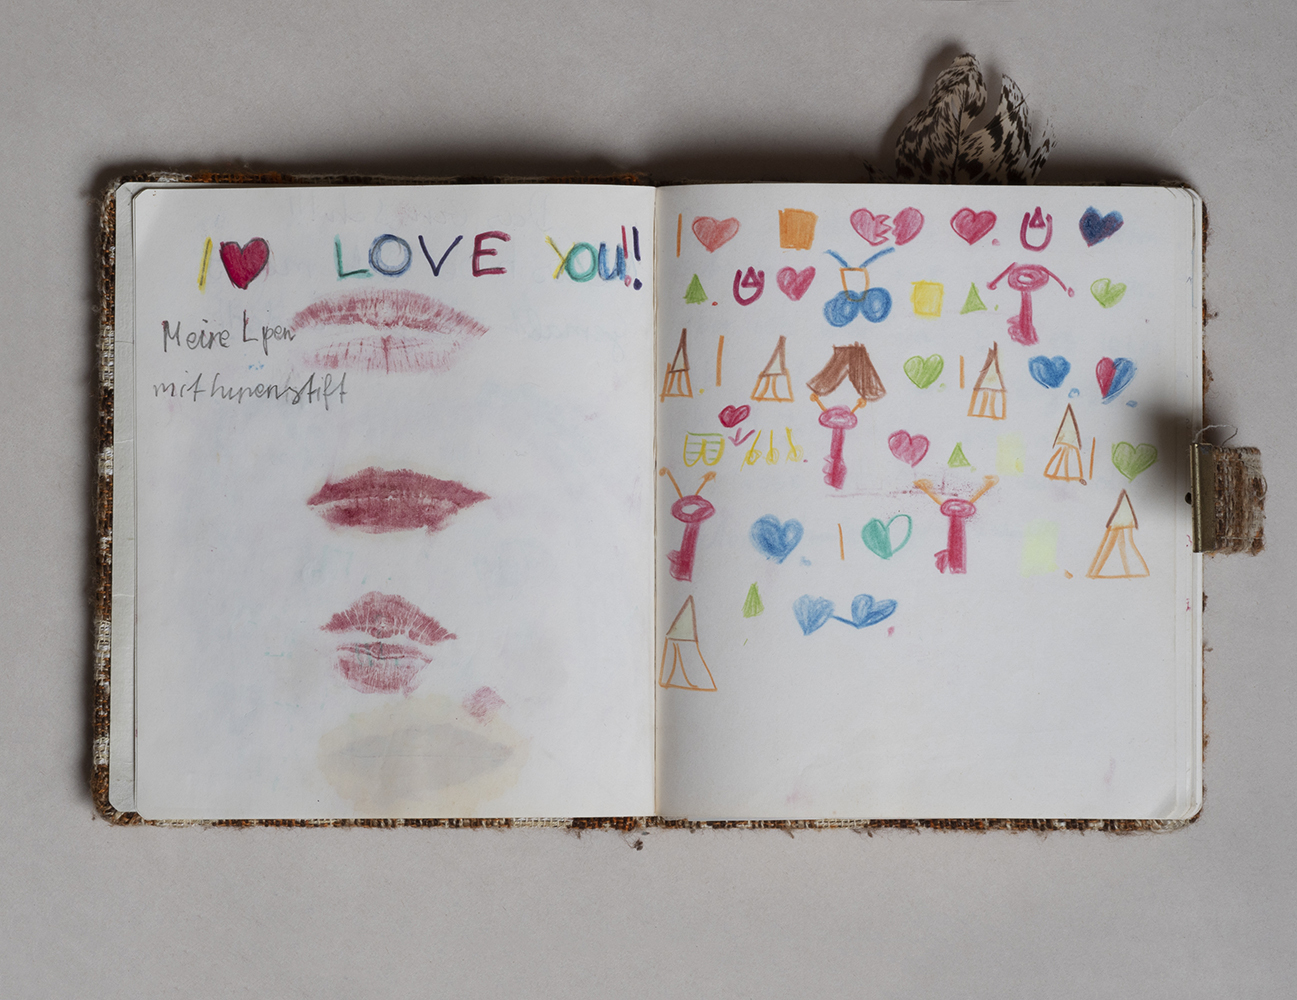 I ♥ LOVE YOU!!
Meine Lipen
mit lipenstift